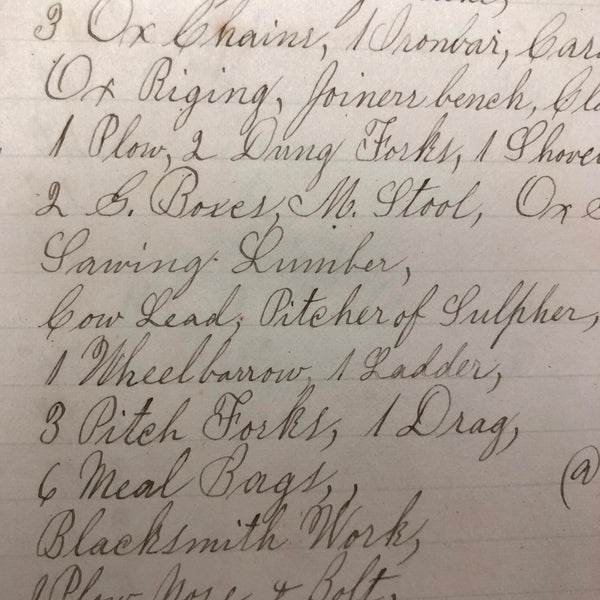 3 Ox Chains, 1 Ironbar, Car
Ox Riging, Joiners bench, Cl
1 Plow, 2 Dung Forks, 1 Shove
2 G. Boxes, M. Stool, Ox
Sawing Lumber,
Cow Lead, Pitcher of Sulpher,
1 Wheelbarrow, 1 Ladder,
3 Pitch Forks, 1 Drag,
6 Meal Bags,
(a
Blacksmith Work,
1 Plow Nose & Bolt,